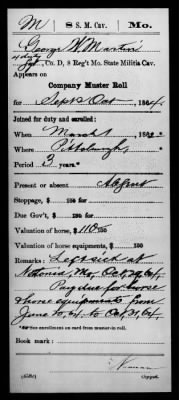 M 8 S. M. Cav. Mo.
George W Martin
Co. D, 8 Reg't Mo. State Militia Cav.
Appears on
Company Muster Roll
for Sept & Oct, 1864.
Joined for duty and enrolled:
When March 1, 186
Where Pittsburgh,
Period 3 years.*
Present or absent Absent
Stoppage, $ 100
Due Gov't, $ 100
Valuation of horse, $ 110 100
Valuation of horse equipments, $ 100
Remarks: Left sick at
Mo, Oct 29, 64,
Pay due for horse
& horse equipments from
June 30, 64 to Oct 31, 64.
*See enrollment on card from muster-in roll.
Book mark:
(858c) Copyist.